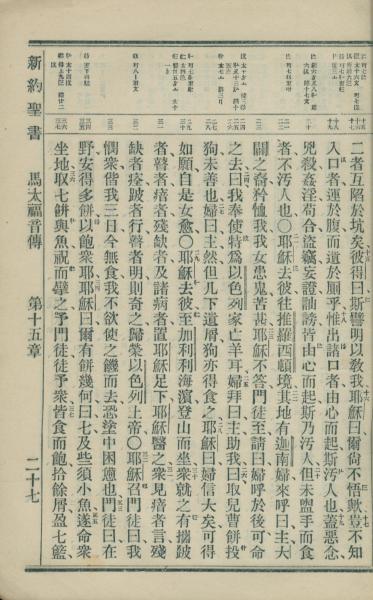 二者互陷於坑矣彼得曰斯譬明以敎我耶穌曰爾尙不悟歟豈不知
入口者運於腹而遺於廁乎惟出諸口者由心而起斯污人也蓋惡念
兇殺姦淫苟合盜竊妄證訕謗皆由心而起斯乃污人但未盥手而食
者不污人也〇耶穌去彼往推羅西頓境其地有迦南婦來呼曰主大
闢之裔矜恤我我女患鬼苦甚耶穌不答門徒至請曰婦呼於後可命
之去曰我奉使特爲以色列家亡羊耳婦拜曰主助我曰取兒曹餅投
狗未善也婦曰主然但几下遺屑狗亦得食之耶穌曰婦信大矣可得
如願自是女愈〇耶穌去彼至加利利海濱登山而坐衆就之有攜跛
者瞽者瘖者殘缺者及諸病者置耶穌足下耶穌醫之衆見瘖者言殘
缺者痊跛者行瞽者明則奇之歸榮以色列上帝〇耶穌召門徒曰我
憫衆偕我三日今無食我不欲使之饑而去恐塗中困憊也門徒曰在
野安得多餅以飽衆耶耶穌曰爾有餅幾何曰七及些須小魚遂命衆
坐地取七餅與魚祝而擘之予門徒徒予衆皆食而飽拾餘屑盈七籃
新約聖書
馬太福音傳
第十五章
二十七